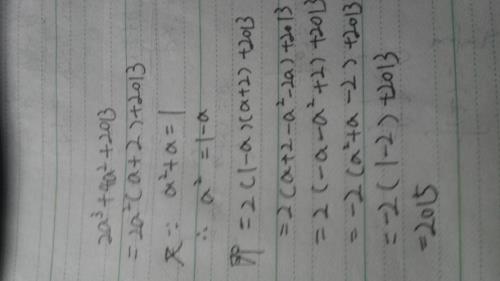 2a³+4a²+2013
=2a²(a+2)+2013
又∵ a²+a=1
∴ a²=1-a
即=2(1-a)(a+2)+2013
=2(a+2-a²-2a)+2013
=2(-a-a²+2)+2013
=-2(a²+a-2)+2013
=-2(1-2)+2013
=2015